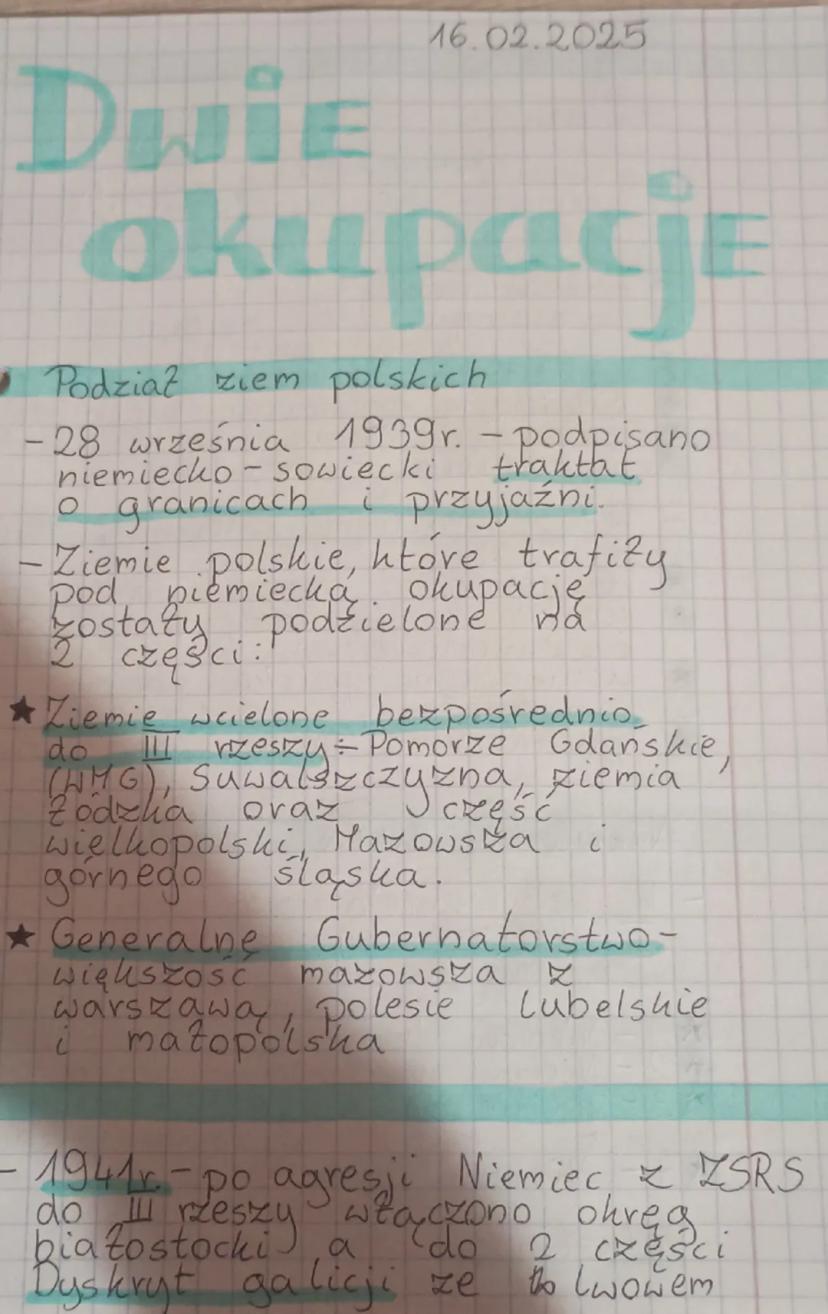 16.02.2025
DwiE
okupacjE
Podział ziem polskich
- 28 września 1939r. - podpisano
niemiecko - sowiecki traktat
o granicach i przyjaźni.
- Ziemie polskie, które trafiły
pod niemiecką okupację
zostały podzielone na
2 części:
★ Ziemie wcielone bezpośrednio
do III rzeszy - Pomorze Gdańskie,
(WMG), Suwalszczyzna, ziemia
Łódzka oraz część
wielkopolski, Mazowsza i
górnego śląska.
★ Generalne Gubernatorstwo -
większość mazowsza z
warszawą, polesie lubelskie
i małopolska
- 1941r. - po agresji Niemiec z ZSRS
do III rzeszy włączono okręg
białostocki a do 2 części
Dyskryt galicji ze lwowem